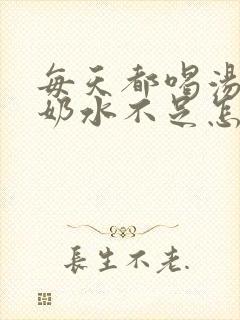 每天都喝汤
奶水不足怎
長生不老.